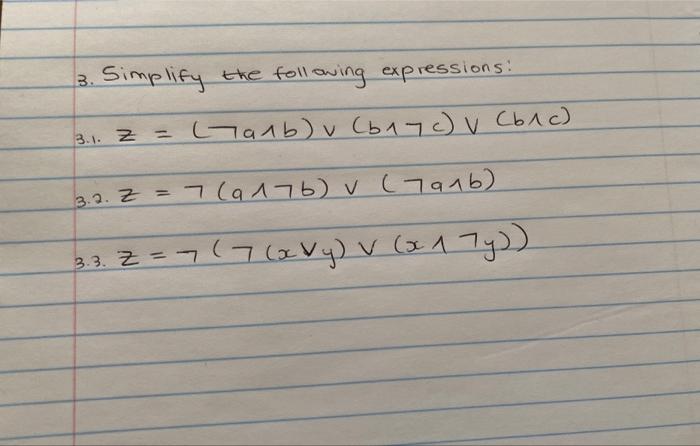 3. Simplify the following expressions:
3.1. z = (¬a∧b) ∨ (b∧¬c) ∨ (b∧c)
3.2. z = ¬(a∧¬b) ∨ (¬a∧b)
3.3. z = ¬(¬(x∨y) ∨ (x∧¬y))